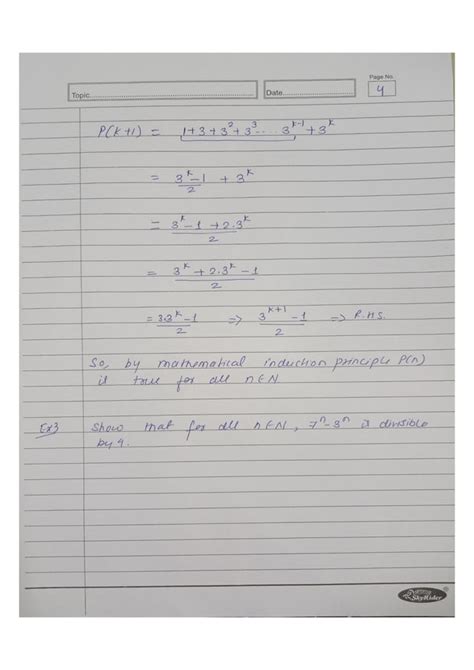 Page No.
Topic.......... Date..........
4
P(k+1) = 1+3+3²+3³.... 3^(k-1) + 3^k
= (3^k - 1)/2 + 3^k
= (3^k - 1 + 2.3^k)/2
= (3^k + 2.3^k - 1)/2
= (3.3^k - 1)/2 => (3^(k+1) - 1)/2 => R.H.S.
So, by mathematical induction principle P(n)
is true for all n∈N
Ex3 Show that for all n∈N, 7^n - 3^n is divisible
by 4.
SkyRider